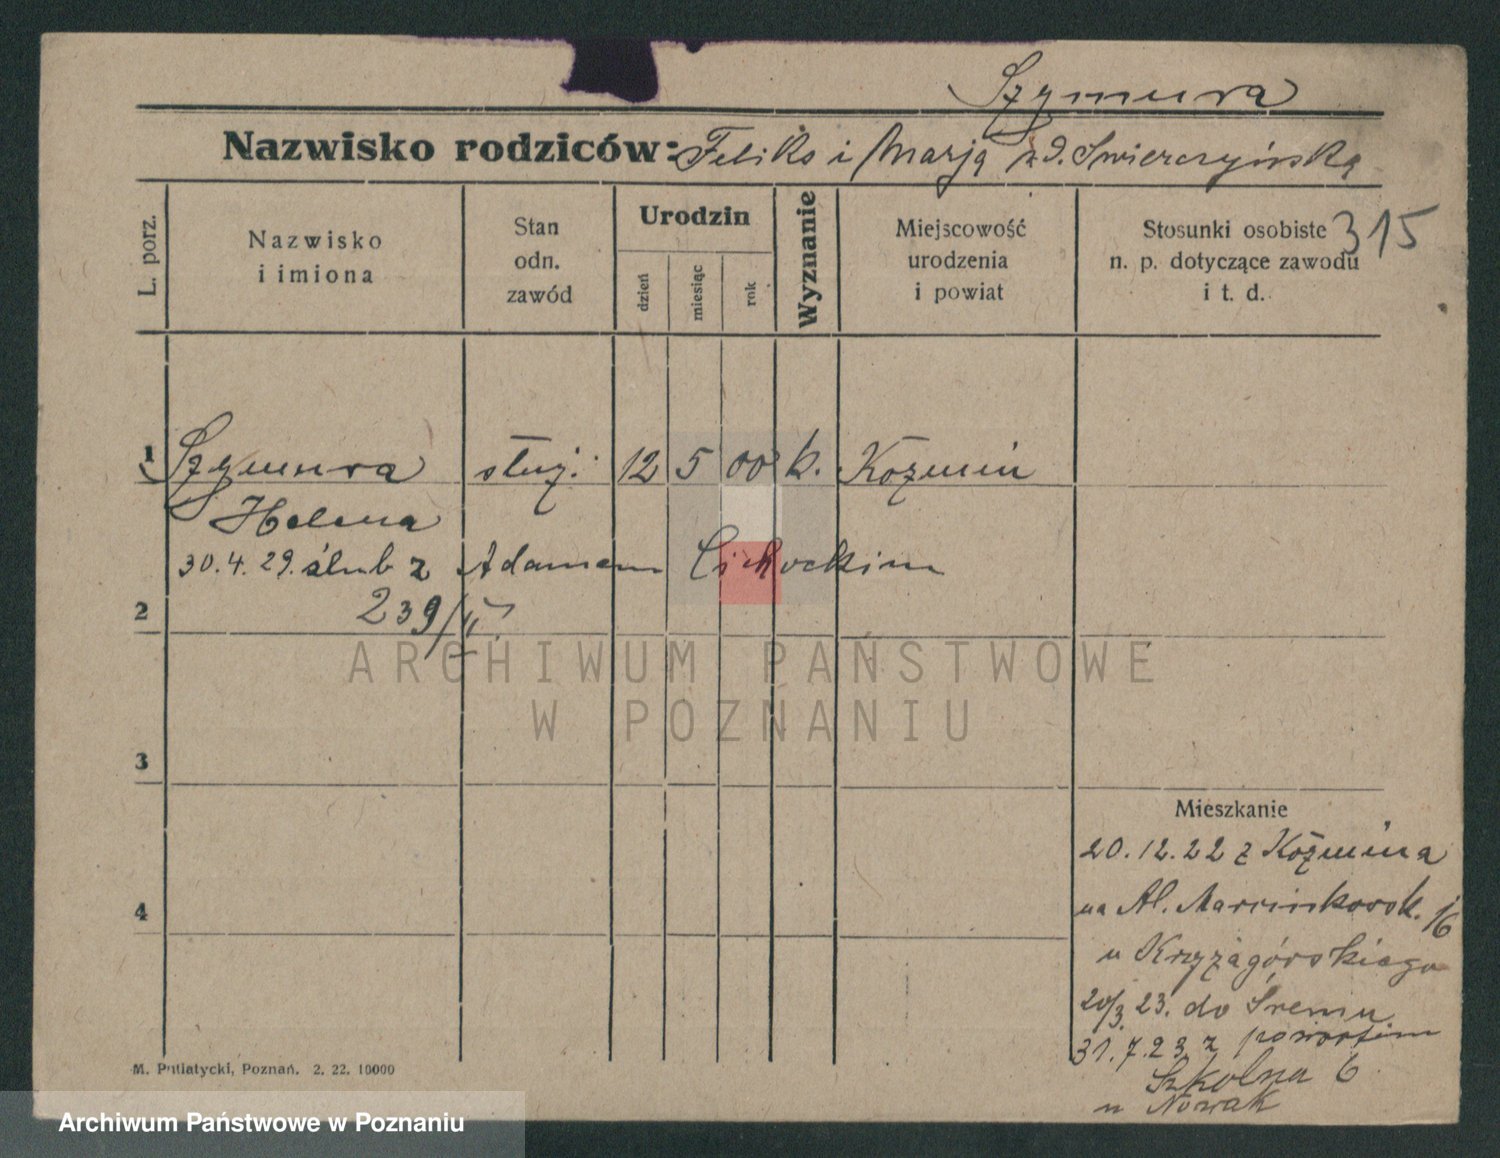 Szymura
Nazwisko rodziców: Feliks i Marją z d. Swierczyńską
L. porz.
Nazwisko
i imiona
Stan
odn.
zawód
Urodzin
dzień
miesiąc
rok
Wyznanie
Miejscowość
urodzenia
i powiat
Stosunki osobiste
n. p. dotyczące zawodu
i t. d.
315
1 Szymura służ. 12 5 00 k. Koźmin
Helena
30.4.29. ślub z Adamem Cichockim
2 239/II
ARCHIWUM PAŃSTWOWE
W POZNANIU
3
Mieszkanie
20.12.22 z Koźmina
4 na Al. Marcinkowsk. 16
u Krzyżagórskiego
20/3. 23. do Śremu
31.7.23 z powrotem
Szkolna 6
u Nowak
M. Putiatycki, Poznań. 2. 22. 10000
Archiwum Państwowe w Poznaniu